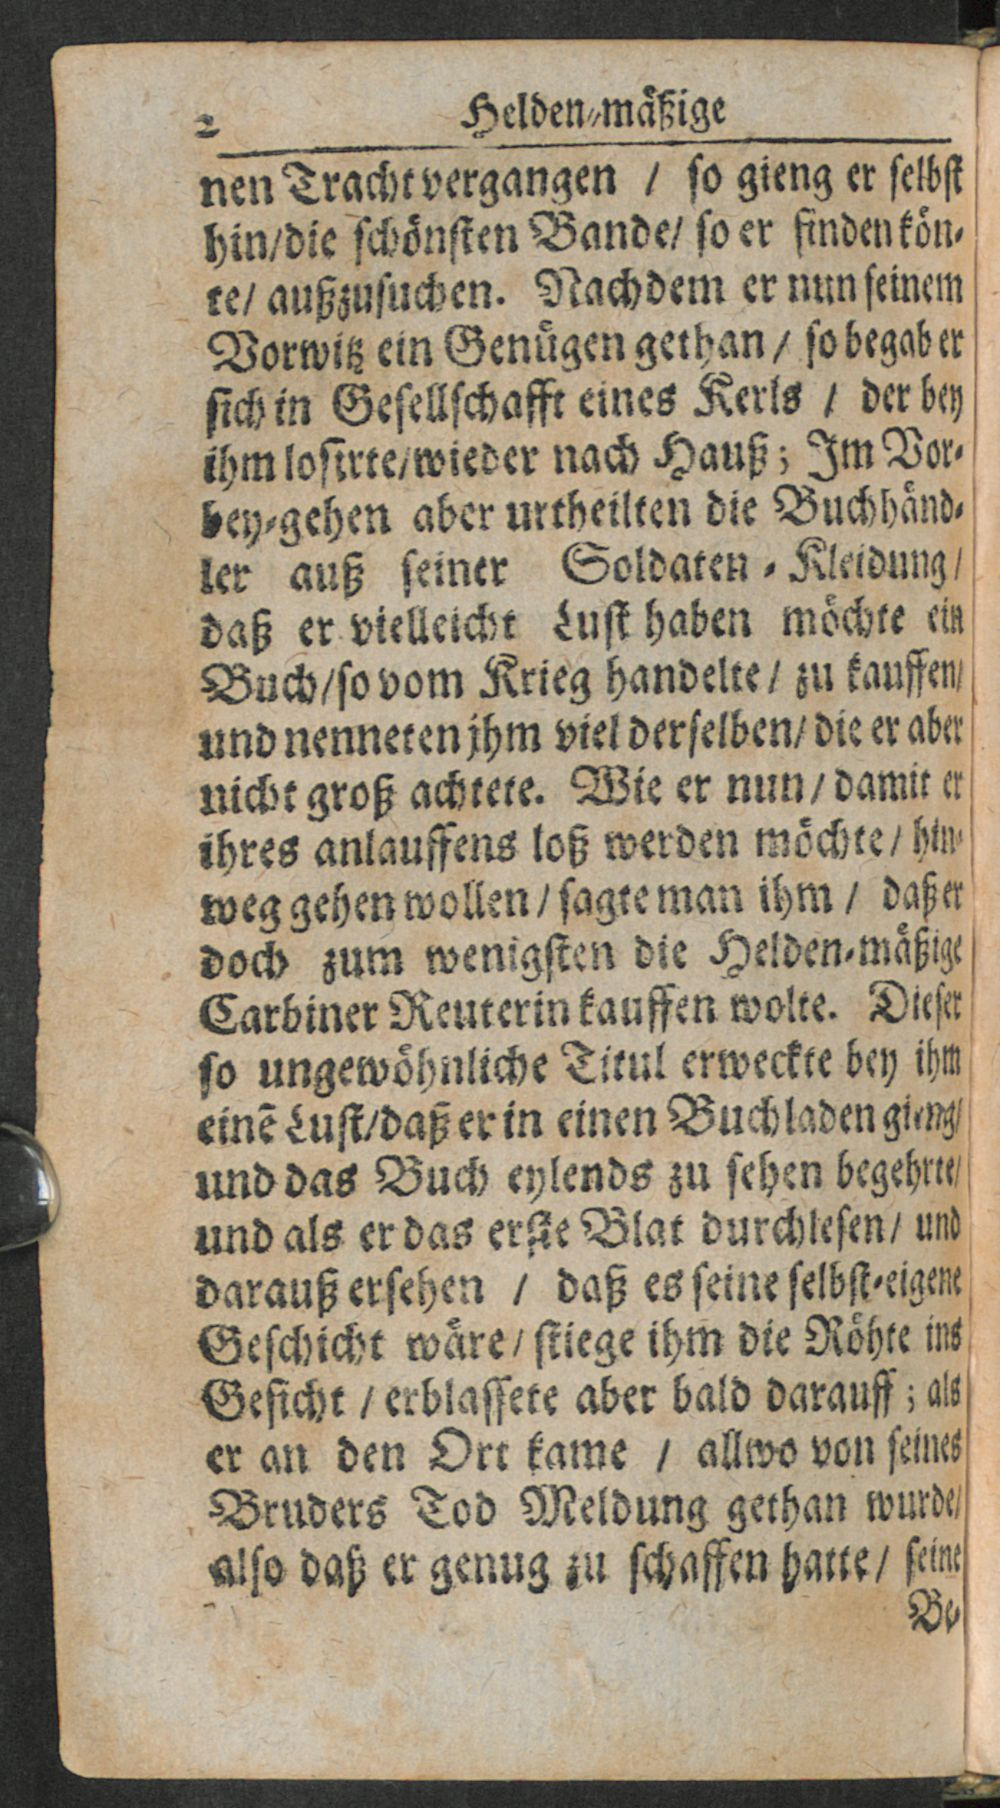 2 Helden-mäßige
nen Tracht vergangen / so gieng er selbst
hin/die schönsten Bande/ so er finden kön-
te/ außzusuchen. Nachdem er nun seinem
Vorwitz ein Genügen gethan / so begab er
sich in Gesellschafft eines Kerls / der bey
ihm losirte/wieder nach Hauß; Im Vor-
bey-gehen aber urtheilten die Buchhänd-
ler auß seiner Soldaten-Kleidung/
daß er vielleicht Lust haben möchte ein
Buch/so vom Krieg handelte/ zu kauffen/
und nenneten jhm viel derselben/ die er aber
nicht groß achtete. Wie er nun / damit er
ihres anlauffens loß werden möchte/ hin-
weg gehen wollen / sagte man ihm / daß er
doch zum wenigsten die Helden-mäßige
Carbiner Reuterin kauffen wolte. Dieser
so ungewöhnliche Titul erweckte bey ihm
einē Lust/daß er in einen Buchladen gieng/
und das Buch eylends zu sehen begehrte/
und als er das erste Blat durchlesen/ und
darauß ersehen / daß es seine selbst-eigene
Geschicht wäre/ stiege ihm die Röhte ins
Gesicht / erblassete aber bald darauff; als
er an den Ort kame / allwo von seines
Bruders Tod Meldung gethan wurde/
also daß er genug zu schaffen hatte/ seine
Be-